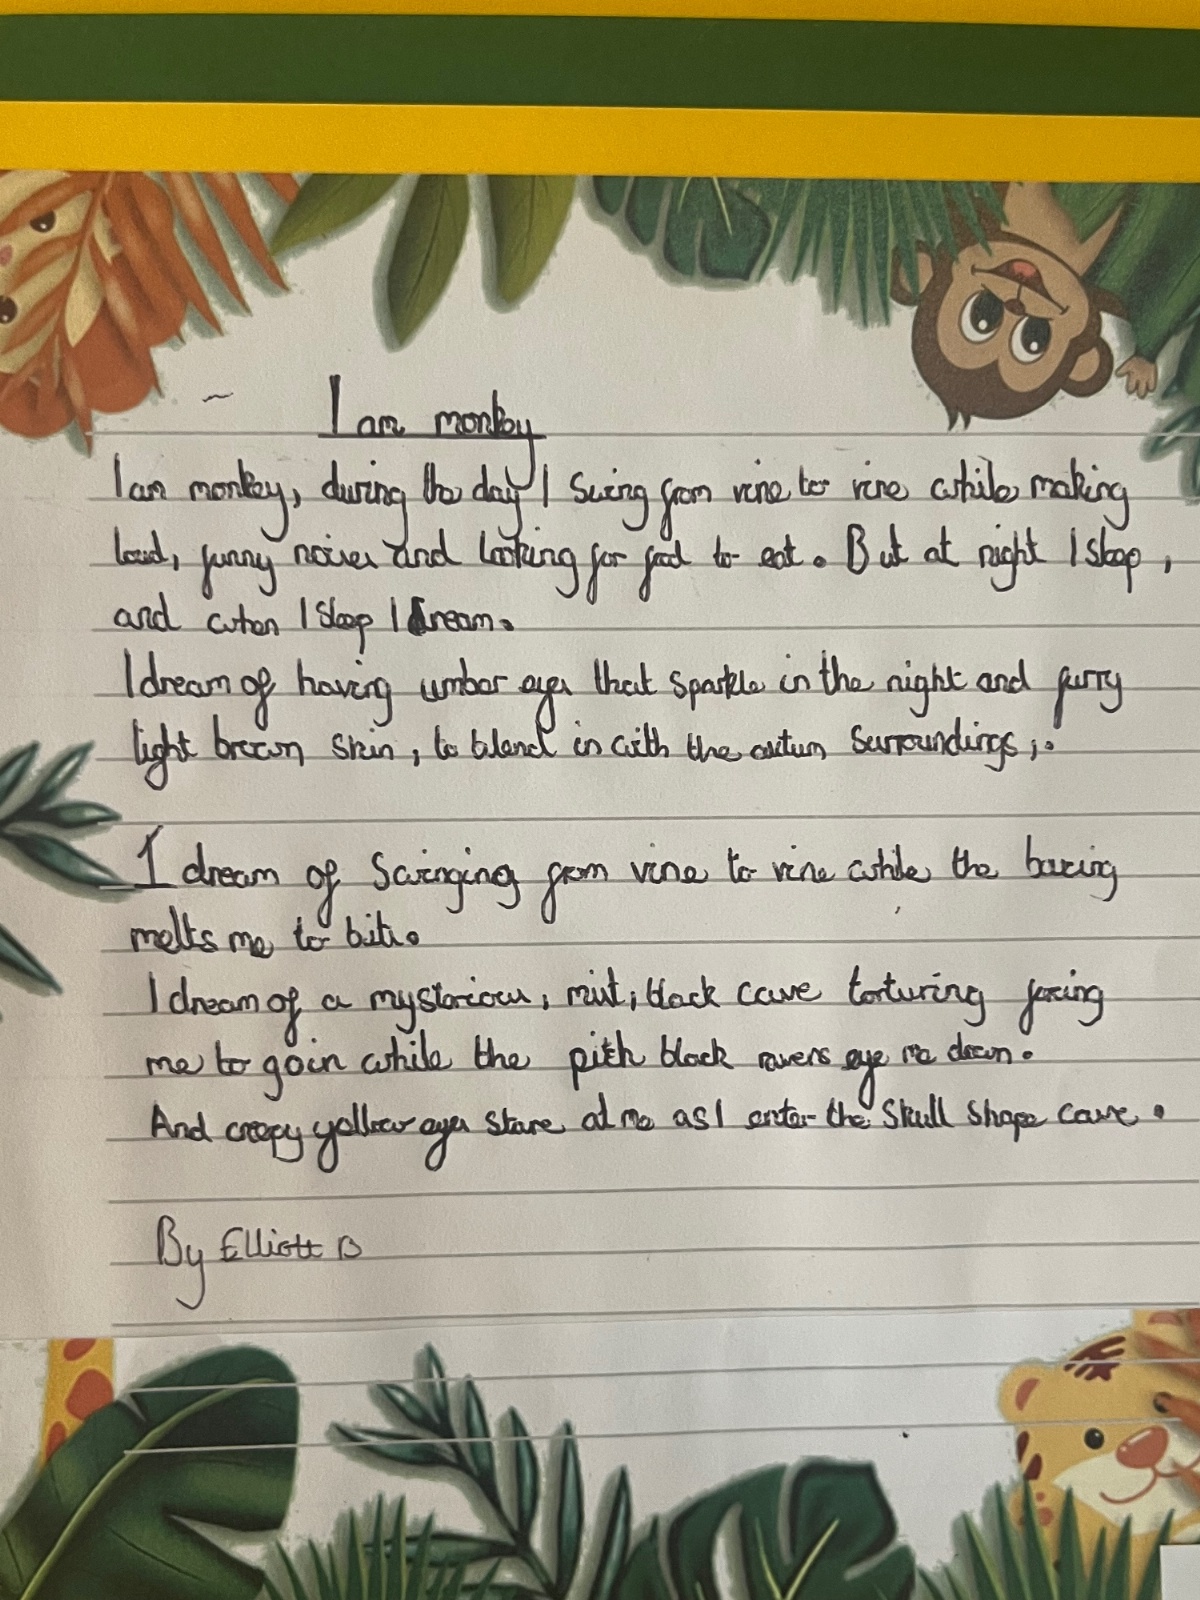 I am monkey
I am monkey, during the day I swing from vine to vine while making
loud, funny noises and looking for food to eat. But at night I sleep,
and when I sleep I dream.
I dream of having umber eyes that sparkle in the night and furry
light brown skin, to blend in with the autum surroundings,.
I dream of swinging from vine to vine while the
melts me to bits.
I dream of a mysterious, mist, black cave torturing forcing
me to go in while the pitch black ravens eye me down.
And creepy yellow eyes stare at me as I enter the skull shape cave.
By Elliott B